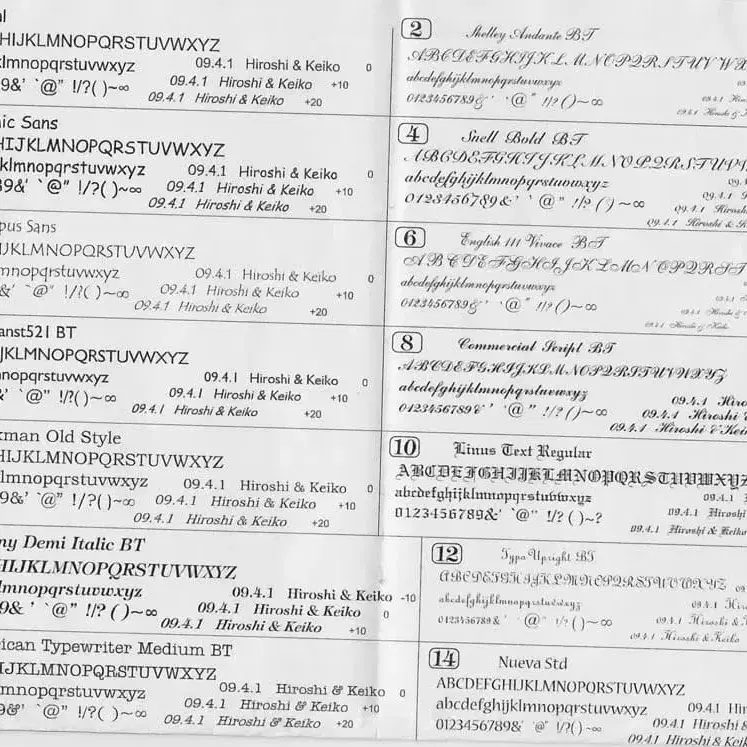 al
HIJKLMNOPQRSTUVWXYZ
klmnopqrstuvwxyz 09.4.1 Hiroshi & Keiko 0
9&' `@" !/?( )~∞ 09.4.1 Hiroshi & Keiko +10
09.4.1 Hiroshi & Keiko +20
ic Sans
HIJKLMNOPQRSTUVWXYZ
klmnopqrstuvwxyz 09.4.1 Hiroshi & Keiko 0
89&' `@" !/?( )~∞ 09.4.1 Hiroshi & Keiko +10
09.4.1 Hiroshi & Keiko +20
pus Sans
IJKLMNOPQRSTUVWXYZ
mnopqrstuvwxyz 09.4.1 Hiroshi & Keiko 0
&' `@" !/?( )~∞ 09.4.1 Hiroshi & Keiko +10
09.4.1 Hiroshi & Keiko +20
anst521 BT
JKLMNOPQRSTUVWXYZ
nopqrstuvwxyz 09.4.1 Hiroshi & Keiko 0
&' `@" !/?( )~∞ 09.4.1 Hiroshi & Keiko +10
09.4.1 Hiroshi & Keiko +20
kman Old Style
IJKLMNOPQRSTUVWXYZ
lmnopqrstuvwxyz 09.4.1 Hiroshi & Keiko 0
9&' `@" !/?( )~∞ 09.4.1 Hiroshi & Keiko +10
09.4.1 Hiroshi & Keiko +20
ny Demi Italic BT
HIJKLMNOPQRSTUVWXYZ
lmnopqrstuvwxyz 09.4.1 Hiroshi & Keiko -10
9&' `@" !/?( )~∞ 09.4.1 Hiroshi & Keiko 0
09.4.1 Hiroshi & Keiko +10
ican Typewriter Medium BT
IJKLMNOPQRSTUVWXYZ
mnopqrstuvwxyz 09.4.1 Hiroshi & Keiko 0
9&' `@" !/?( )~∞ 09.4.1 Hiroshi & Keiko +10
09.4.1 Hiroshi & Keiko +20
2 Shelley Andante BT
ABCDEFGHIJKLMNOPQRSTUVWX
abcdefghijklmnopqrstuvwxyz
0123456789&' `@" !/?( )~∞ 09.4.1
09.4.1 Hiroshi &
4 Snell Bold BT
ABCDEFGHIJKLMNOPQRSTUVW
abcdefghijklmnopqrstuvwxyz 09.4.1
0123456789&' `@" !/?( )~∞ 09.4.1
09.4.1 Hiroshi &
6 English 111 Vivace BT
ABCDEFGHIJKLMNOPQRST
abcdefghijklmnopqrstuvwxyz
0123456789&' `@" !/?( )~∞ 09.4.1 Hiroshi &
09.4.1 Hiroshi & Keiko
8 Commercial Script BT
ABCDEFGHIJKLMNOPQRSTUVWXYZ
abcdefghijklmnopqrstuvwxyz 09.4.1 Hiro
0123456789&' `@" !/?( )~∞ 09.4.1 Hiroshi &
09.4.1 Hiroshi & Kei
10 Linus Text Regular
ABCDEFGHIJKLMNOPQRSTUVWXYZ
abcdefghijklmnopqrstuvwxyz 09.4.1
0123456789&' `@" !/?( )~? 09.4.1 Hiroshi
09.4.1 Hiroshi & Keiko
12 Typo Upright BT
ABCDEFGHIJKLMNOPQRSTUVWXYZ 09
abcdefghijklmnopqrstuvwxyz 09.4.1 Hi
0123456789&' `@" !/?( )~∞ 09.4.1 Hiroshi &
09.4.1 Hiroshi & Keiko
14 Nueva Std
ABCDEFGHIJKLMNOPQRSTUVWXYZ
abcdefghijklmnopqrstuvwxyz 09.4.1 Hi
0123456789&' `@" !/?( )~∞ 09.4.1 Hiroshi
09.4.1 Hiroshi & K